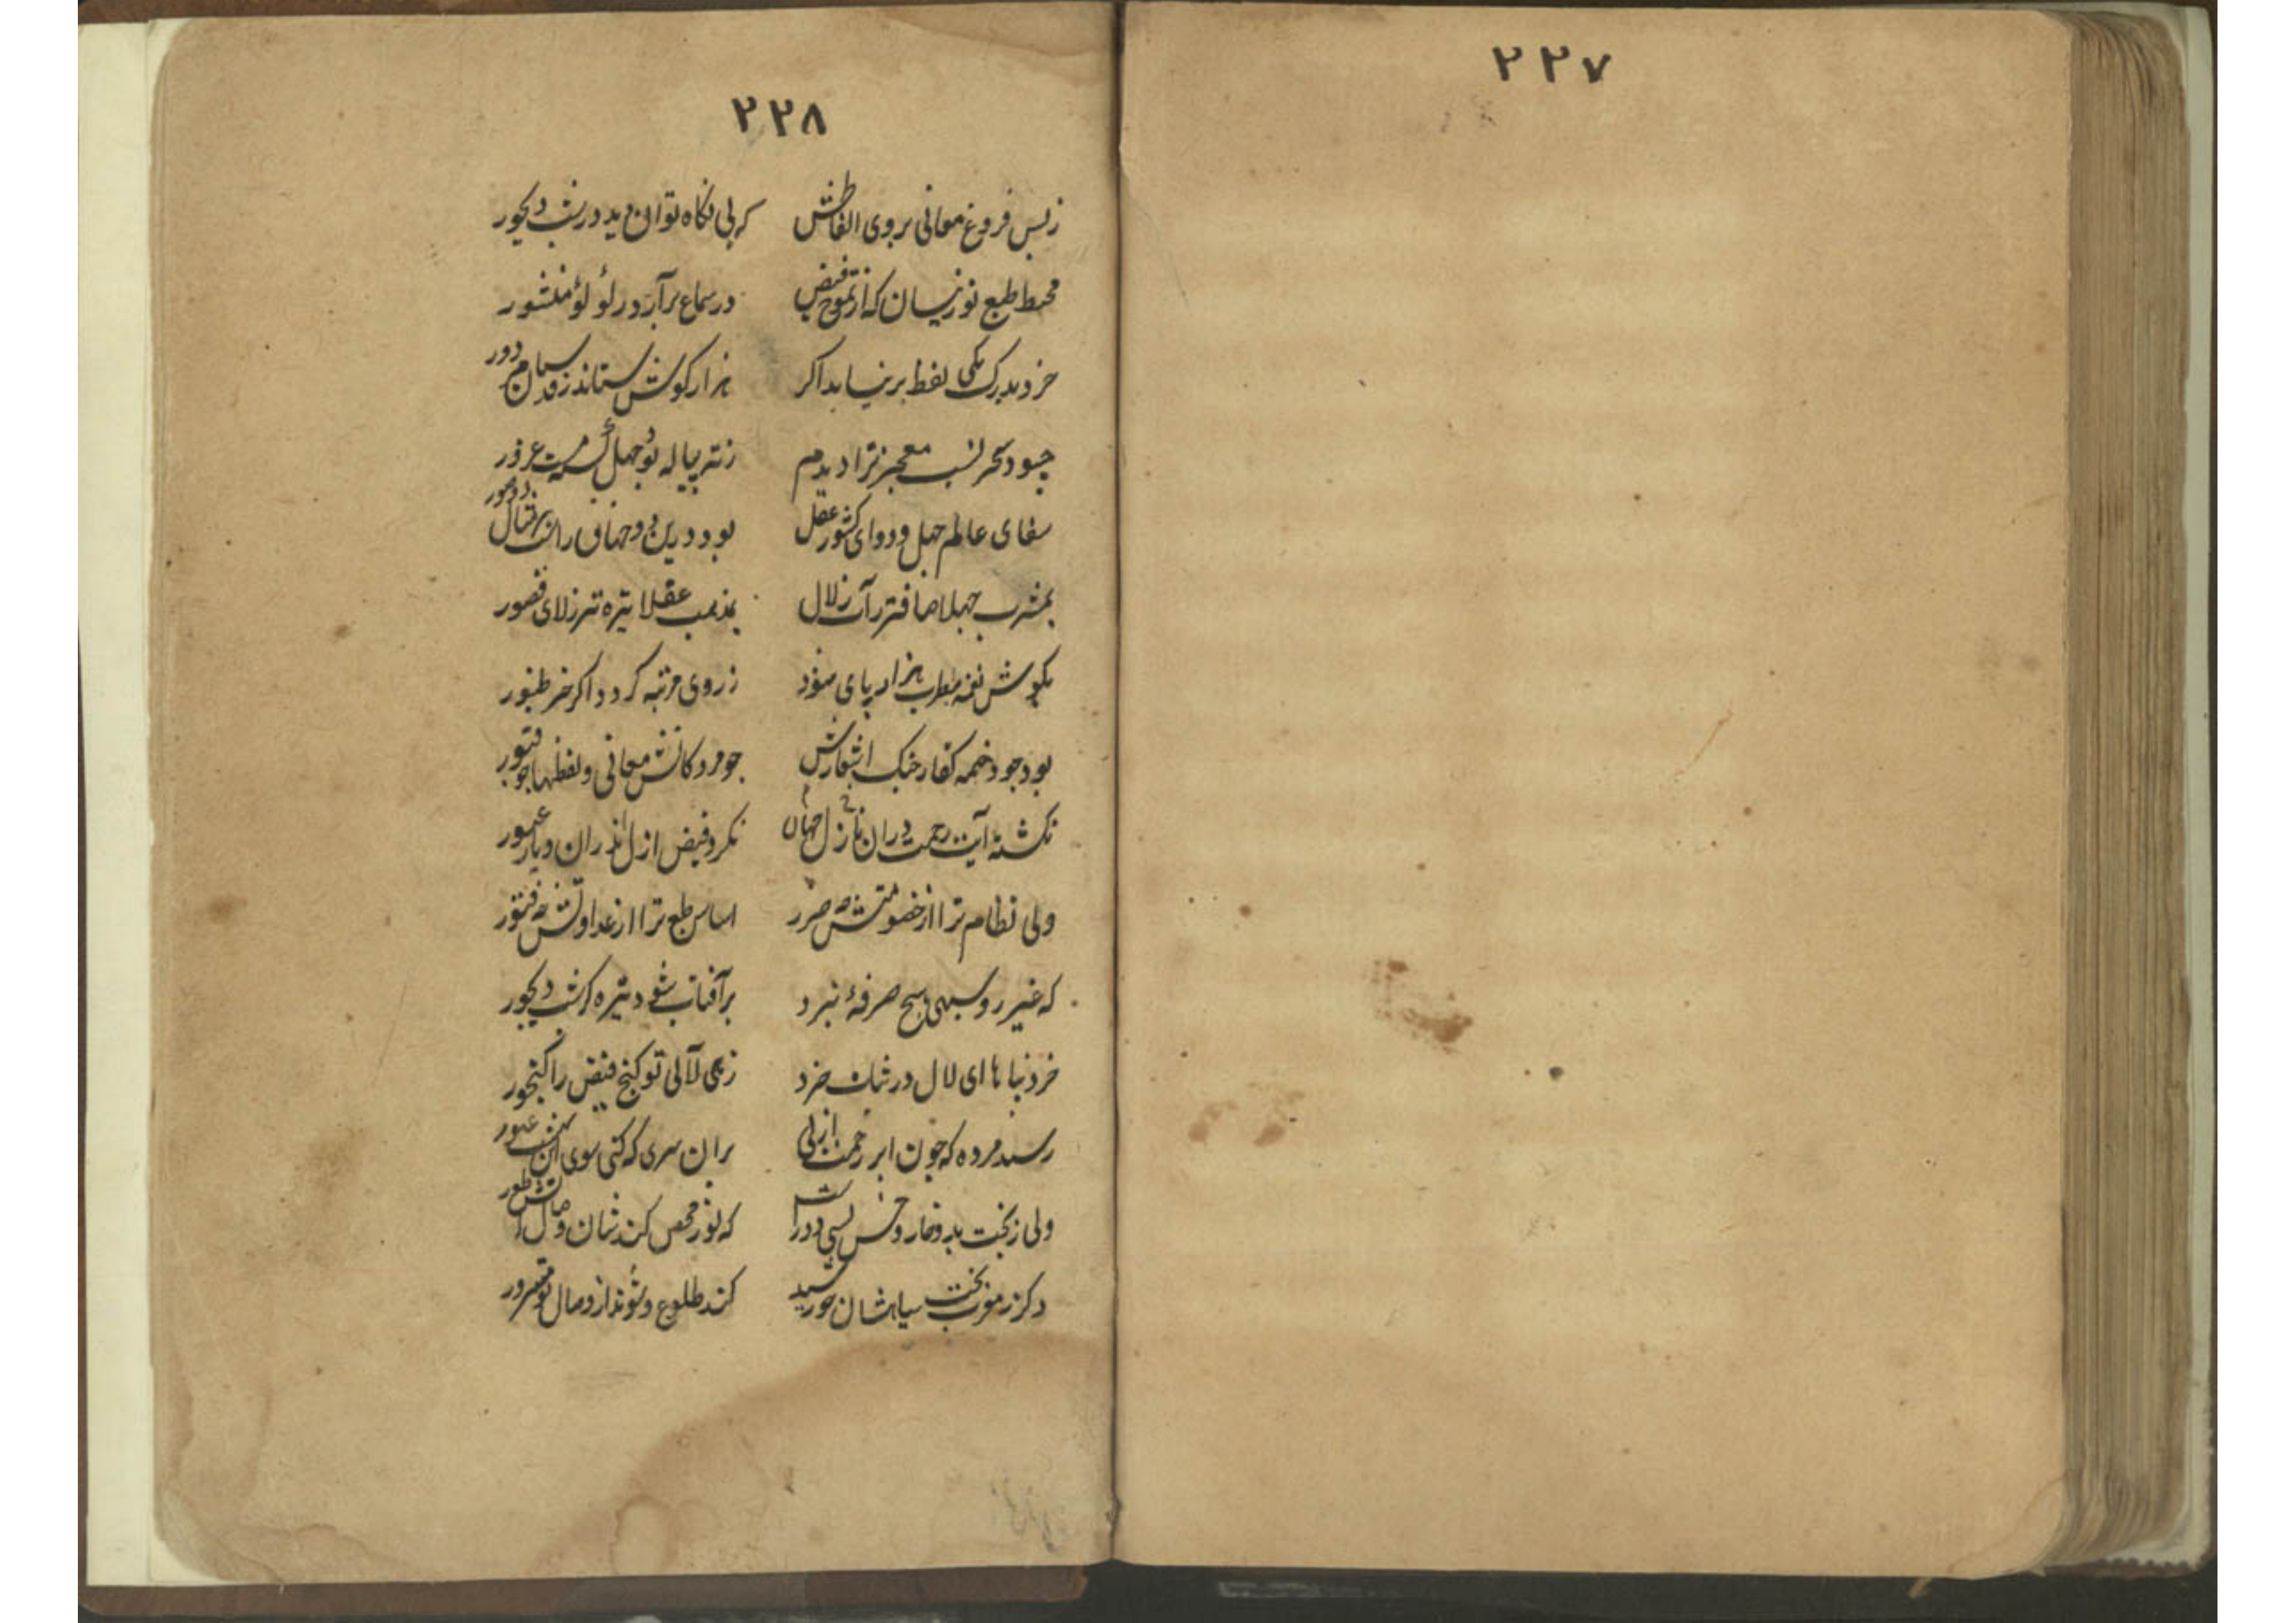 ۲۲۷
۲۲۸
ز بس فروغ معانی بروی الفاظش که بی نکاه توان دید در شب دیجور
محیط طبع نو نیسان که از تموج فیض در سماع برآرد در لؤلؤ منشور
خرد بدرک یکی لفظ برنیاید اکر هزار کوش ستاند ز
چو سحر نسب معجز ترا دیدم ز ته پیاله بوجهل مست غرور
عالم جهل و وای کشور عقل بود درین دو جهان را
بمشرب جهلا صافتر ز آب زلال بمذهب عقلا تیره تر ز لای قصور
بکوش نغمه مطرب هزار پای شود ز روی مرتبه کردد اکر خر طنبور
بود چو دخمه کفار خنک اشعارش چو مرد کانش معانی و لفظها چو قبور
نکشته آیت رحمت دران نازل نکرد فیض ازل اندران دیار عبور
ولی نظام ترا از خصومتش چه ضرر اساس طبع ترا از عداوتش چه فتور
که غیر روسیهی هیچ صرفهٔ نبرد بر آفتاب شود تیره کر شب دیجور
خرد نیا با ای لال در ثنات خرد زهی لآلی تو کنج فیض را کنجور
رسید مرده که چون ابر رحمت ازلی بران سری که کنی سوی این عبور
ولی ز بخت بد و خار و خس بسی دور است که نور محض کند شان وصال آتش طور
دکر ز مغرب بخت سیاهشان خورشید کند طلوع و شوند از وصال تو مسرور